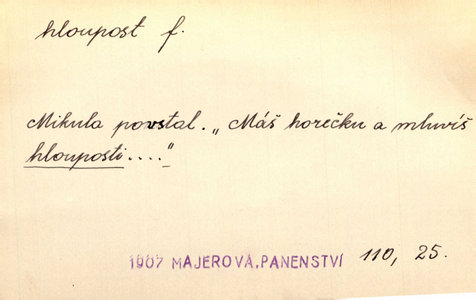 hloupost f.
Mikula povstal. „Máš horečku a mluvíš
hlouposti...."
1907 MAJEROVÁ, PANENSTVÍ 110, 25.